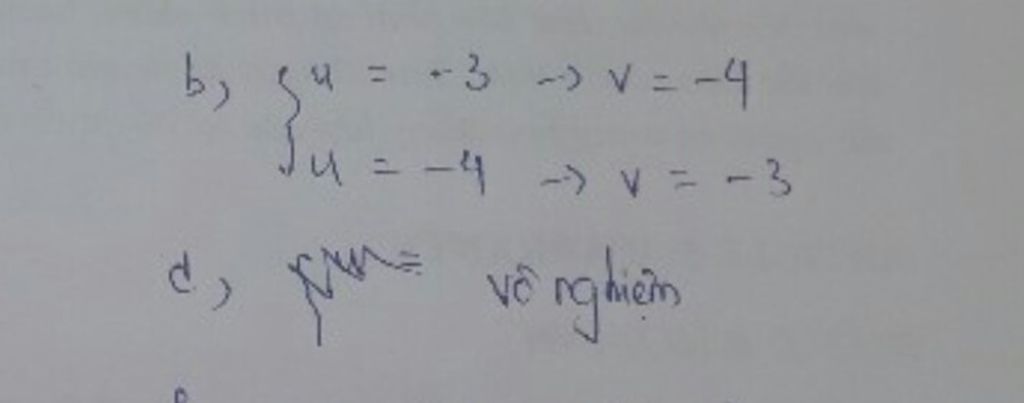 b, { u = -3 → v = -4
u = -4 → v = -3
d, vô nghiệm